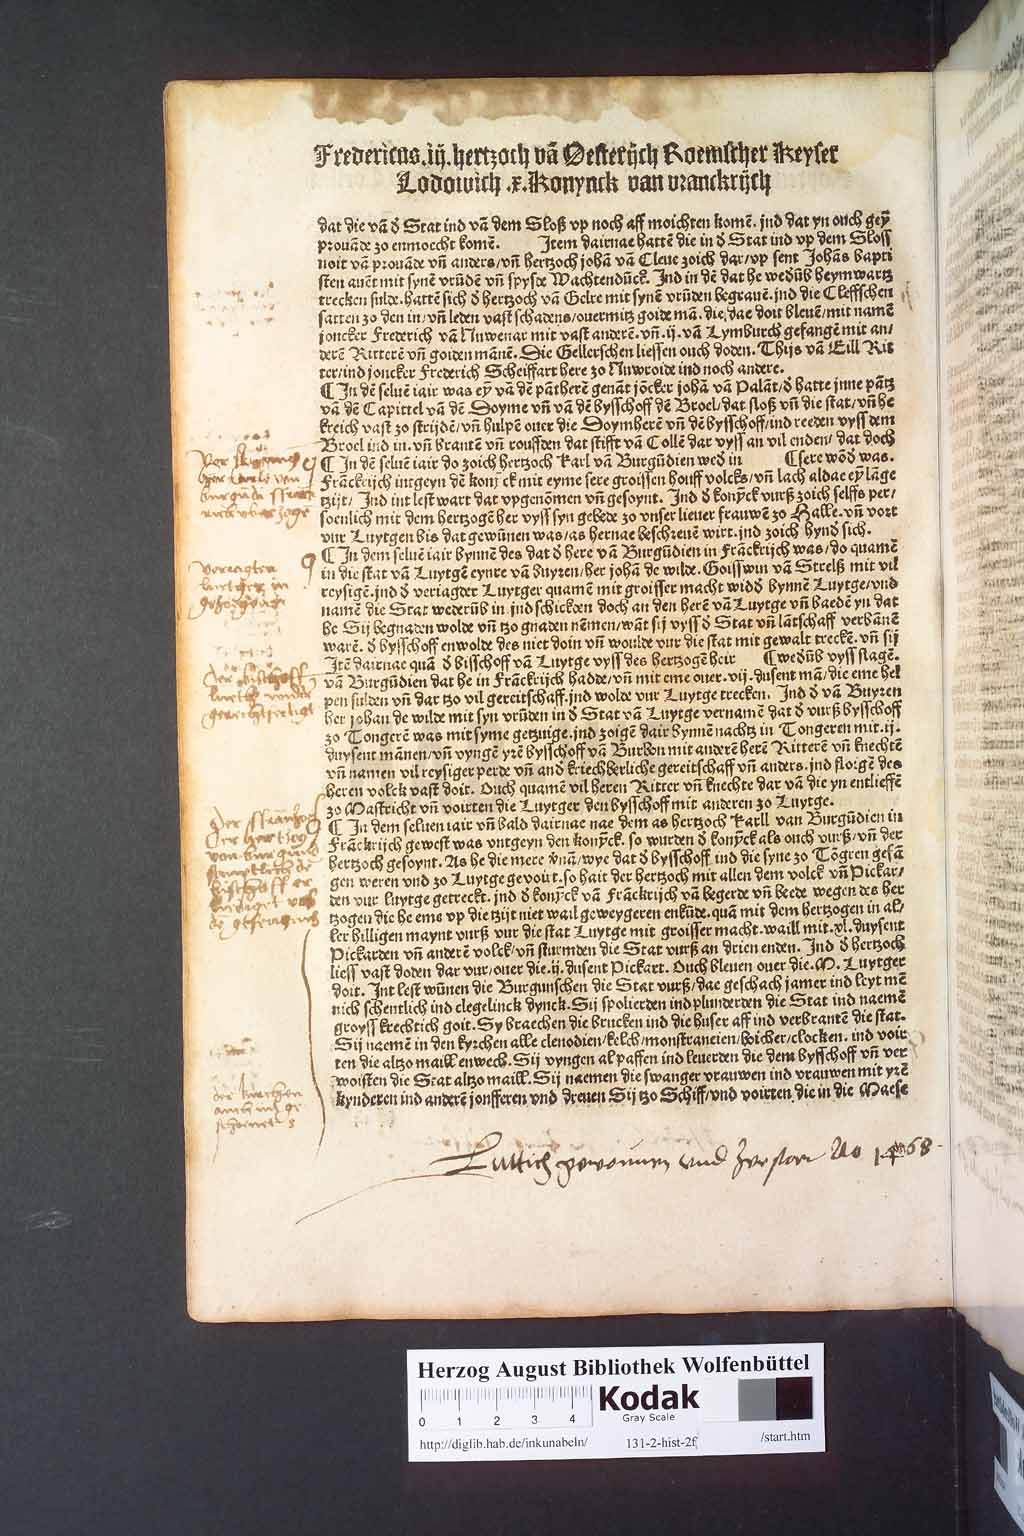 Fredericus .iij. hertzoch vā Oesterijch Roemscher Keyser
Lodowich .x. Konynck van vranckrijch
dat die vā d Stat ind vā dem Sloß vp noch aff moichten komē. jnd dat yn ouch geӯ
prouāde zo enmoecht komē. Jtem dairnae hattē die in d Stat ind vp dem Sloss
noit vā prouāde vn̄ anders/vn̄ hertzoch johā vā Cleue zoich dar/vp sent Johās bapti
sten auēt mit synē vrūdē vn̄ spysde Wachtendūck. Jnd in dē dat he wedūb heymwartz
trecken sulde. hattē sich d hertzoch vā Gelre mit synē vrūden begrauē. jnd die Cleffschen
satten zo den in/vn̄ leden vast schadens/ouermitz goide mā. die/dae doit bleuē/mit namē
joncker Frederich vā Nuwenar mit vast anderē. vn̄ .ij. vā Lymburch gefangē mit an/
derē Ritterē vn̄ goiden mānē. Die Gellerschen liessen ouch doden. Thijs vā Eill Rit
ter/ind joncker Frederich Scheiffart here zo Nuwroide ind noch andere.
¶ Jn dē seluē iair was eӯ vā dē pātherē genāt jōcker johā vā Palāt/d hatte jnne pātz
vā dē Capittel vā dē Doyme vn̄ vā dē bysschoff dē Broel/dat sloß vn̄ die stat/vn̄ he
kreich vast zo strijdē/vn̄ hulpē ouer die Doymherē vn̄ dē bysschoff/ind reeden vyss dem
Broel ind in. vn̄ brantē vn̄ roufften dat stifft vā Collē dar vyss an vil enden/ dat doch
¶ Jn dē seluē iair do zoich hertzoch Karl vā Burgūdien wed in ¶ sere wōd was.
Frāckrijch intgeyn dē konӯck mit eyme sere groissen houff volcks/vn̄ lach aldae eӯ lāge
tzijt/ Jnd int lest wart dat vpgenōmen vn̄ gesoynt. Jnd d konӯck vurß zoich selffs per/
soenlich mit dem hertzogē her vyss syn gebede zo vnser lieuer frauwē zo Halle. vn̄ vort
vur Luytgen bis dat gewūnen was/as hernae beschreuē wirt. jnd zoich hynd sich.
¶ Jn dem seluē iair bynnē des dat d here vā Burgūdien in Frāckrijch was/do quamē
in die stat vā Luytgē eynre vā Buyren/her johā de wilde. Goisswin vā Strelß mit vil
reysigē. jnd d veriagder Luytger quamē mit groisser macht widd bynnē Luytge/vnd
namē die Stat wederūb in. jnd schickden doch an den herē vā Luytge vn̄ baedē yn dat
he Sij begnaden wolde vn̄ tzo gnaden nēmen/wāt sij vyss d Stat vn̄ lātschaff verbānē
warē. d bysschoff enwolde des niet doin vn̄ woulde vur die stat mit gewalt treckē. vn̄ sij
Jtē dairnae quā d bisschoff vā Luytge vyss des hertzogē heir ¶ wedūb vyss slagē.
vā Burgūdien dat he in Frāckrijch hadde/vn̄ mit eme ouer .vij. dusent mā/die eme hel
pen sulden vn̄ dar tzo vil gereitschaff. jnd wolde vur Luytge trecken. Jnd d vā Buyren
her johan de wilde mit syn vrūden in d Stat vā Luytge vernamē dat d vurß bysschoff
zo Tongerē was mit syme getzuige. jnd zoigē dair bynnē nachtz in Tongeren mit .ij.
duysent mānen/vn̄ vyngē yrē bysschoff vā Burbon mit anderē herē Ritterē vn̄ knechtē
vn̄ namen vil reysiger perde vn̄ and kriechberliche gereitschaff vn̄ anders. jnd sloigē des
heren volck vast doit. Ouch quamē vil heren Ritter vn̄ knechte dar vā die yn entlieffē
zo Mastricht vn̄ voirten die Luytger den bysschoff mit anderen zo Luytge.
¶ Jn dem seluen iair vn̄ bald dairnae nae dem as hertzoch Karll van Burgūdien in
Frāckrijch gewest was vntgeyn den konӯck. so wurden d konӯck als ouch vurß/vn̄ der
hertzoch gesoynt. As he die mere vnā/wye dat d bysschoff ind die syne zo Tōgren gefā
gen weren vnd zo Luytge gevoirt. so hait der hertzoch mit allen dem volck vn̄ Pickar/
den vur luytge getreckt. jnd d konӯck vā Frāckrijch vā begerde vn̄ beede wegen des her
tzogen die he eme vp die tzijt niet wail geweygeren enkūde. quā mit dem hertzogen in al/
ler hilligen maynt vurß vur die stat Luytge mit groisser macht. waill mit .xl. duysent
Pickarden vn̄ anderē volck/vn̄ sturmden die Stat vurß an drien enden. Jnd d hertzoch
liess vast doden dar vur/ouer die .ij. dusent Pickart. Ouch bleuen ouer die .M. Luytger
doit. Jnt lest wūnen die Burgunschen die Stat vurß/dae geschach jamer ind leyt mē
nich schentlich ind clegelinck dynck. Sij spolierden ind plunderden die Stat ind naemē
groyss krechtich goit. Sy braechen die brucken ind die huser aff ind verbrantē die stat.
Sij naemē in den kyrchen alle clenodien/kelch/monstrancien/boicher/clocken. ind voir
ten die altzo maill enwech. Sij vyngen al paffen ind leuerden die dem bysschoff vn̄ ver
woisten die Stat altzo maill. Sij naemen die swanger vrauwen ind vrauwen mit yrē
kynderen ind anderē jonfferen vnd dreuen Sij tzo Schiff/vnd voirten die in die Maese
Luttich gewonnen und Zerstört Ao 1468
Herzog August Bibliothek Wolfenbüttel
0 1 2 3 4
Kodak
Gray Scale
http://diglib.hab.de/inkunabeln/ 131-2-hist-2f /start.htm